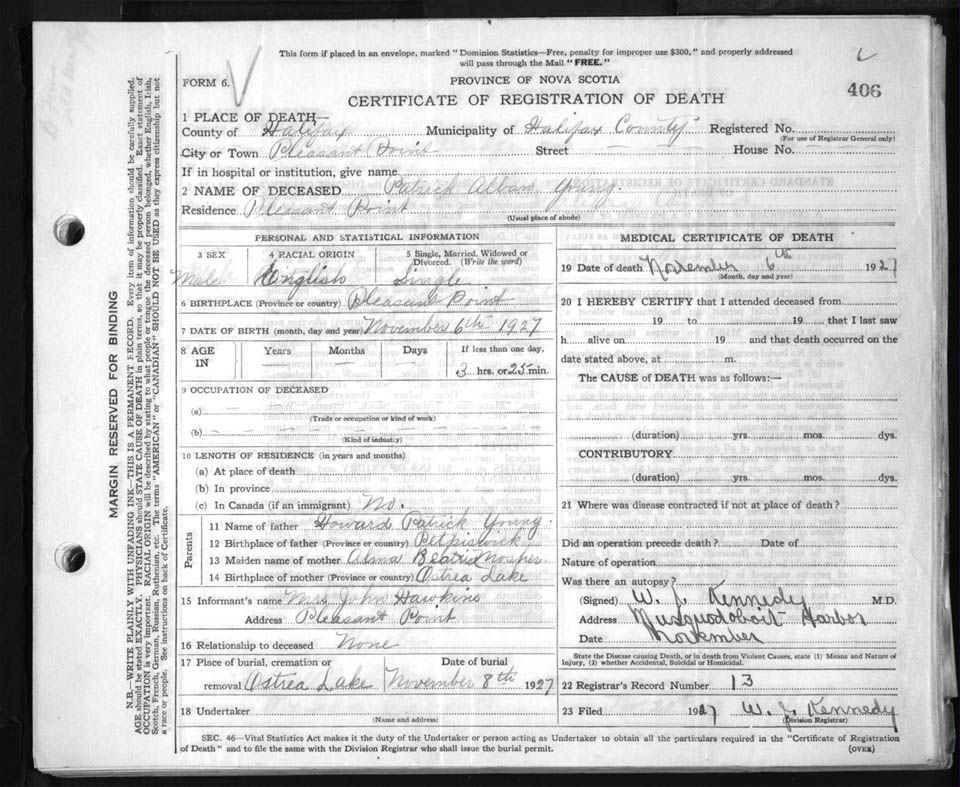 This form if placed in an envelope, marked "Dominion Statistics—Free, penalty for improper use $300," and properly addressed
will pass through the Mail "FREE."
FORM 6.
PROVINCE OF NOVA SCOTIA
406
CERTIFICATE OF REGISTRATION OF DEATH
1 PLACE OF DEATH—
County of Halifax Municipality of Halifax County Registered No.
(For use of Registrar General only)
City or Town Pleasant Point Street House No.
If in hospital or institution, give name
2 NAME OF DECEASED Patrick Alban Young.
Residence Pleasant Point
(Usual place of abode)
PERSONAL AND STATISTICAL INFORMATION
3 SEX 4 RACIAL ORIGIN 5 Single, Married, Widowed or
Divorced. (Write the word)
Male English Single
6 BIRTHPLACE (Province or country) Pleasant Point
7 DATE OF BIRTH (month, day and year) November 6th 1927
8 AGE IN Years Months Days If less than one day,
3 hrs. or 25 min.
9 OCCUPATION OF DECEASED
(a)
(Trade or occupation or kind of work)
(b)
(Kind of industry)
10 LENGTH OF RESIDENCE (in years and months)
(a) At place of death
(b) In province
(c) In Canada (if an immigrant) No.
Parents
11 Name of father Howard Patrick Young.
12 Birthplace of father (Province or country) Petpiswick
13 Maiden name of mother Alma Beatrice Mosher
14 Birthplace of mother (Province or country) Ostrea Lake
15 Informant's name Mrs John Hawkins
Address Pleasant Point
16 Relationship to deceased None
17 Place of burial, cremation or Date of burial
removal Ostrea Lake November 8th 1927
18 Undertaker
(Name and address)
MEDICAL CERTIFICATE OF DEATH
19 Date of death November 6th 1927
(Month, day and year)
20 I HEREBY CERTIFY that I attended deceased from
19 to 19 that I last saw
h alive on 19 and that death occurred on the
date stated above, at m.
The CAUSE of DEATH was as follows:—
(duration) yrs. mos. dys.
CONTRIBUTORY
(duration) yrs. mos. dys.
21 Where was disease contracted if not at place of death?
Did an operation precede death? Date of
Nature of operation
Was there an autopsy?
(Signed) W. J. Kennedy M.D.
Address Musquodoboit Harbor
Date November
State the Disease causing Death, or in death from Violent Causes, state (1) Means and Nature of
Injury, (2) whether Accidental, Suicidal or Homicidal.
22 Registrar's Record Number 13
23 Filed 1927 W. J. Kennedy
(Division Registrar)
SEC. 46—Vital Statistics Act makes it the duty of the Undertaker or person acting as Undertaker to obtain all the particulars required in the "Certificate of Registration
of Death" and to file the same with the Division Registrar who shall issue the burial permit. (OVER)
MARGIN RESERVED FOR BINDING
N.B.—WRITE PLAINLY WITH UNFADING INK—THIS IS A PERMANENT RECORD. Every item of information should be carefully supplied.
AGE should be stated EXACTLY. PHYSICIANS should STATE CAUSE OF DEATH in plain terms, so that it may be properly classified. Exact statement of
OCCUPATION is very important. RACIAL ORIGIN will be described by stating to what people or tongue the deceased person belonged, whether English, Irish,
Scotch, French, German, Russian, Ruthenian, etc. The terms "AMERICAN" or "CANADIAN" SHOULD NOT BE USED as they express citizenship but not
a race or people. See instructions on back of Certificate.